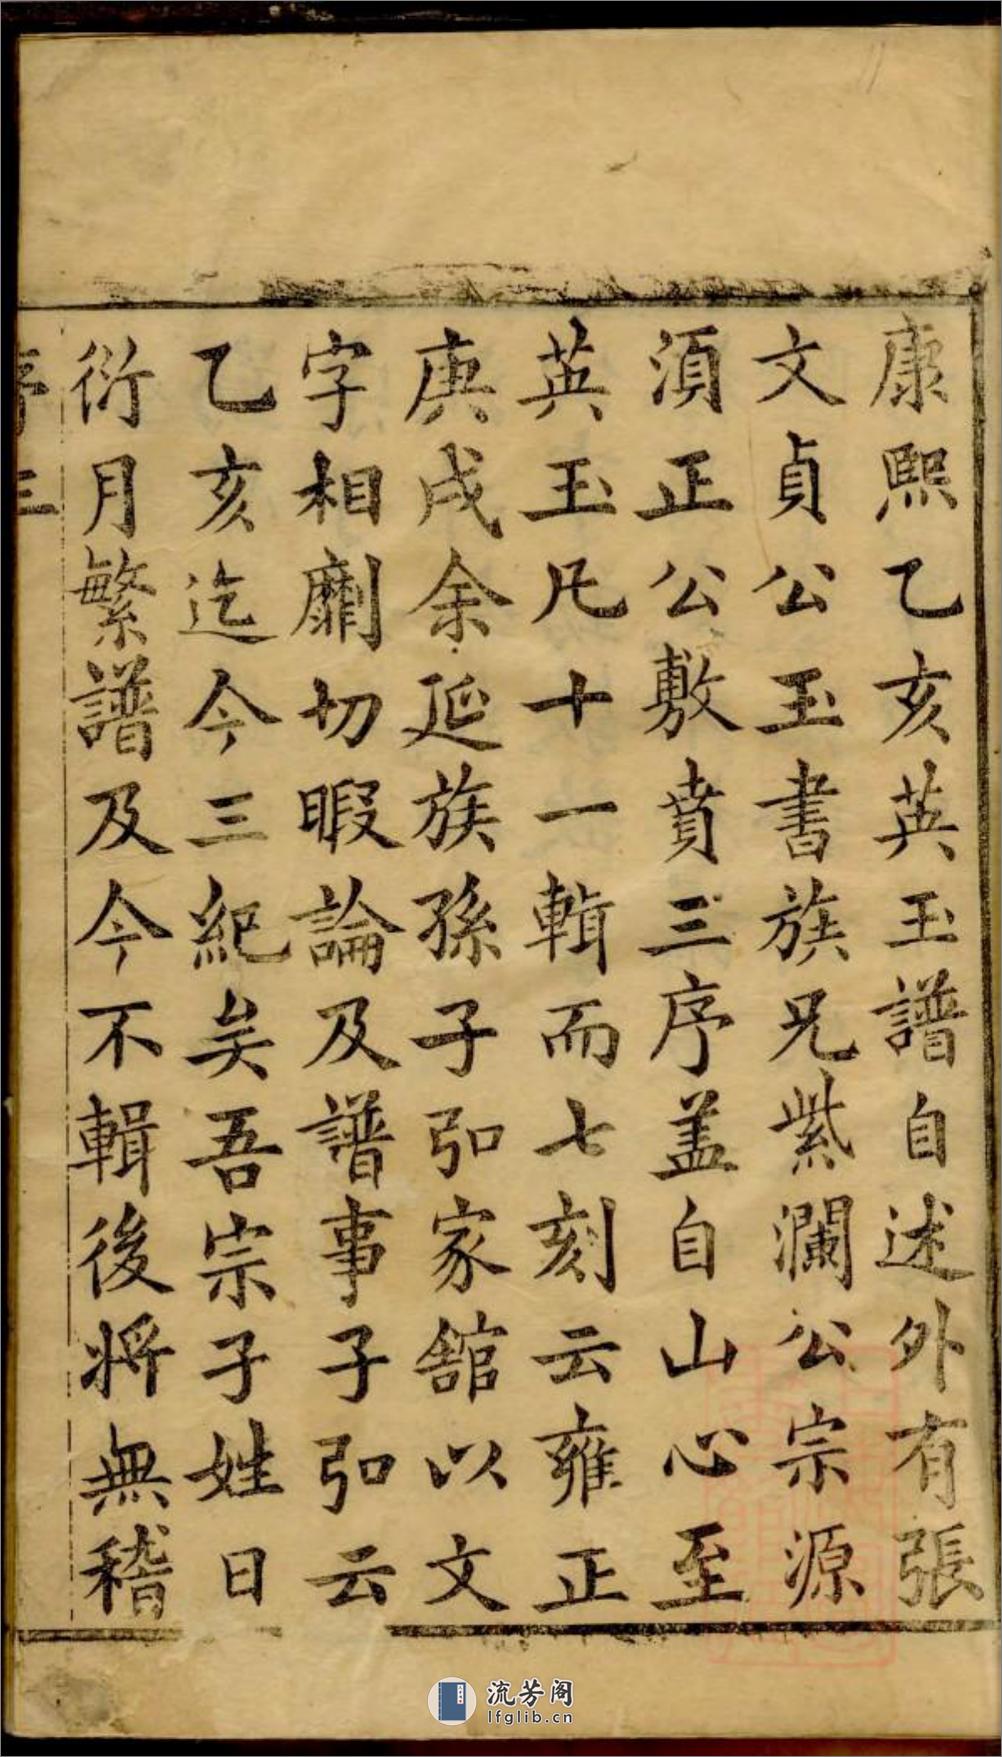 康熙乙亥英玉譜自述外有張
文貞公玉書族兄紫瀾公宗源
湏正公敷賁三序盖自山心至
英玉凡十一輯而七刻云雍正
庚戌余延族孫子弘家館以文
字相劘切暇論及譜事子弘云
乙亥迄今三紀矣吾宗子姓日
衍月繁譜及今不輯後將無稽
序 三
流芳阁
lfglib.cn